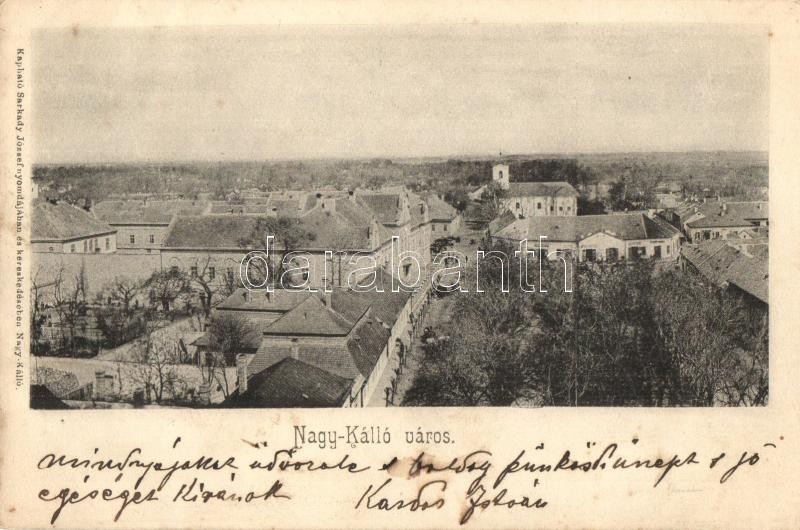 Kapható Sarkady József nyomdájában és kereskedésében Nagy-Kálló.
darabanth
Nagy-Kálló város.
mindnyájokat üdvözöle s boldog pünkösdi ünnepet s jó
egéséget Kivánok Kardos István